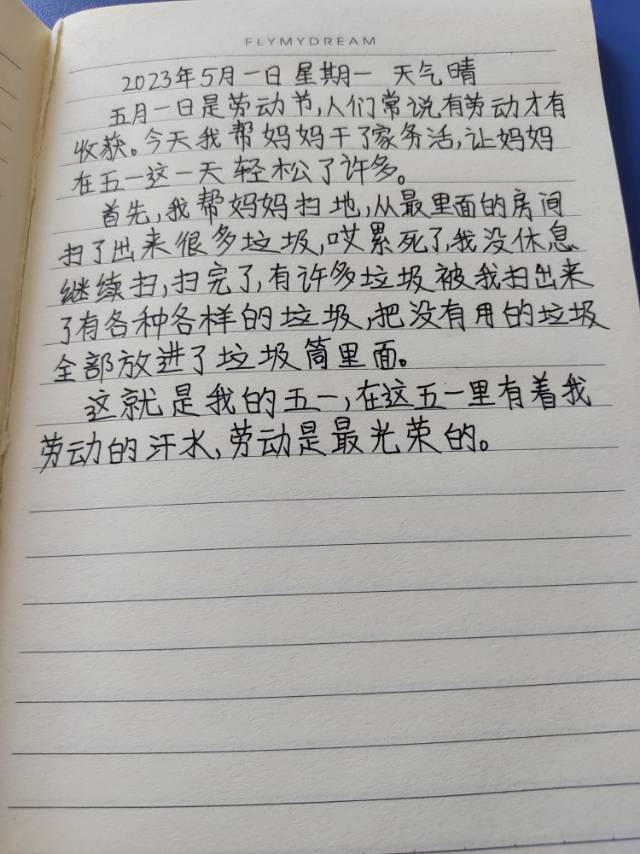 FLYMYDREAM
2023年5月一日 星期一 天气晴
五月一日是劳动节,人们常说有劳动才有
收获。今天我帮妈妈干了家务活,让妈妈
在五一这一天轻松了许多。
首先,我帮妈妈扫地,从最里面的房间
扫了出来很多垃圾,哎累死了,我没休息
继续扫,扫完了,有许多垃圾被我扫出来
了有各种各样的垃圾,把没有用的垃圾
全部放进了垃圾筒里面。
这就是我的五一,在这五一里有着我
劳动的汗水,劳动是最光荣的。